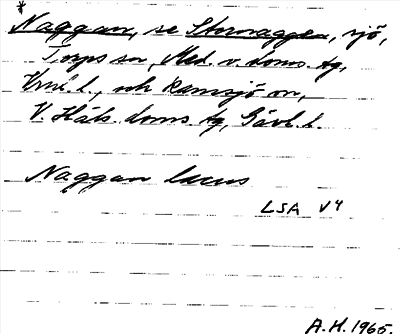 * Naggan, se Stornaggen, sjö,
Torps sn, Med. v. doms. tg,
Vnl l., och Ramsjö sn,
V. Häls. doms. tg, Gävl. l.
Naggan lacus
LSA V4
A.H. 1965.